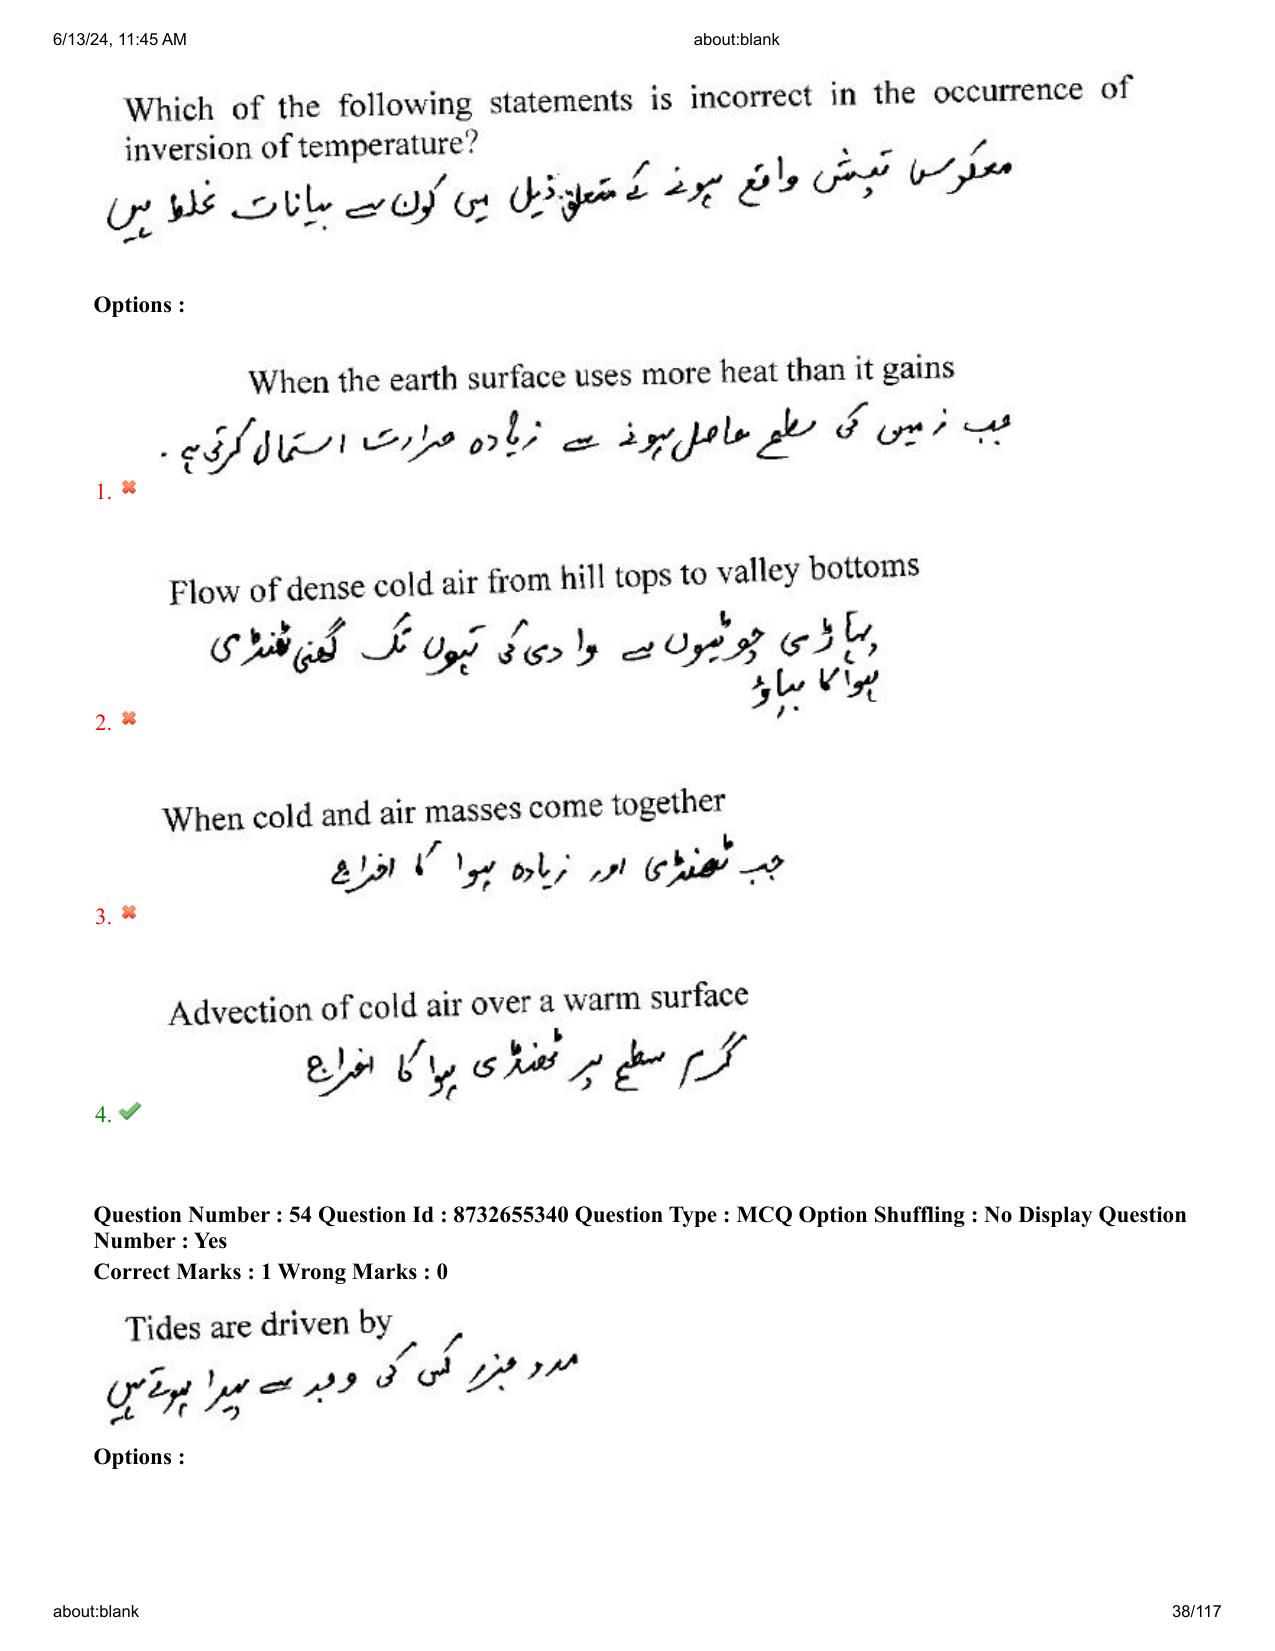 6/13/24, 11:45 AM about:blank
Which of the following statements is incorrect in the occurrence of
inversion of temperature?
معکوس تپش واقع ہونے کے متعلق ذیل میں کون سے بیانات غلط ہیں
Options :
When the earth surface uses more heat than it gains
جب زمین کی سطح حاصل ہونے سے زیادہ حرارت استمال کرتی ہے۔
1.
Flow of dense cold air from hill tops to valley bottoms
پہاڑی چوٹیوں سے وادی کی تہوں تک گھنی ٹھنڈی
ہوا کا بہاوؑ
2.
When cold and air masses come together
جب ٹھنڈی اور زیادہ ہوا کا اخراج
3.
Advection of cold air over a warm surface
گرم سطح پر ٹھنڈی ہوا کا اخراج
4.
Question Number : 54 Question Id : 8732655340 Question Type : MCQ Option Shuffling : No Display Question
Number : Yes
Correct Marks : 1 Wrong Marks : 0
Tides are driven by
مدو جزر کس کی وجہ سے پیدا ہوتے ہیں
Options :
about:blank 38/117